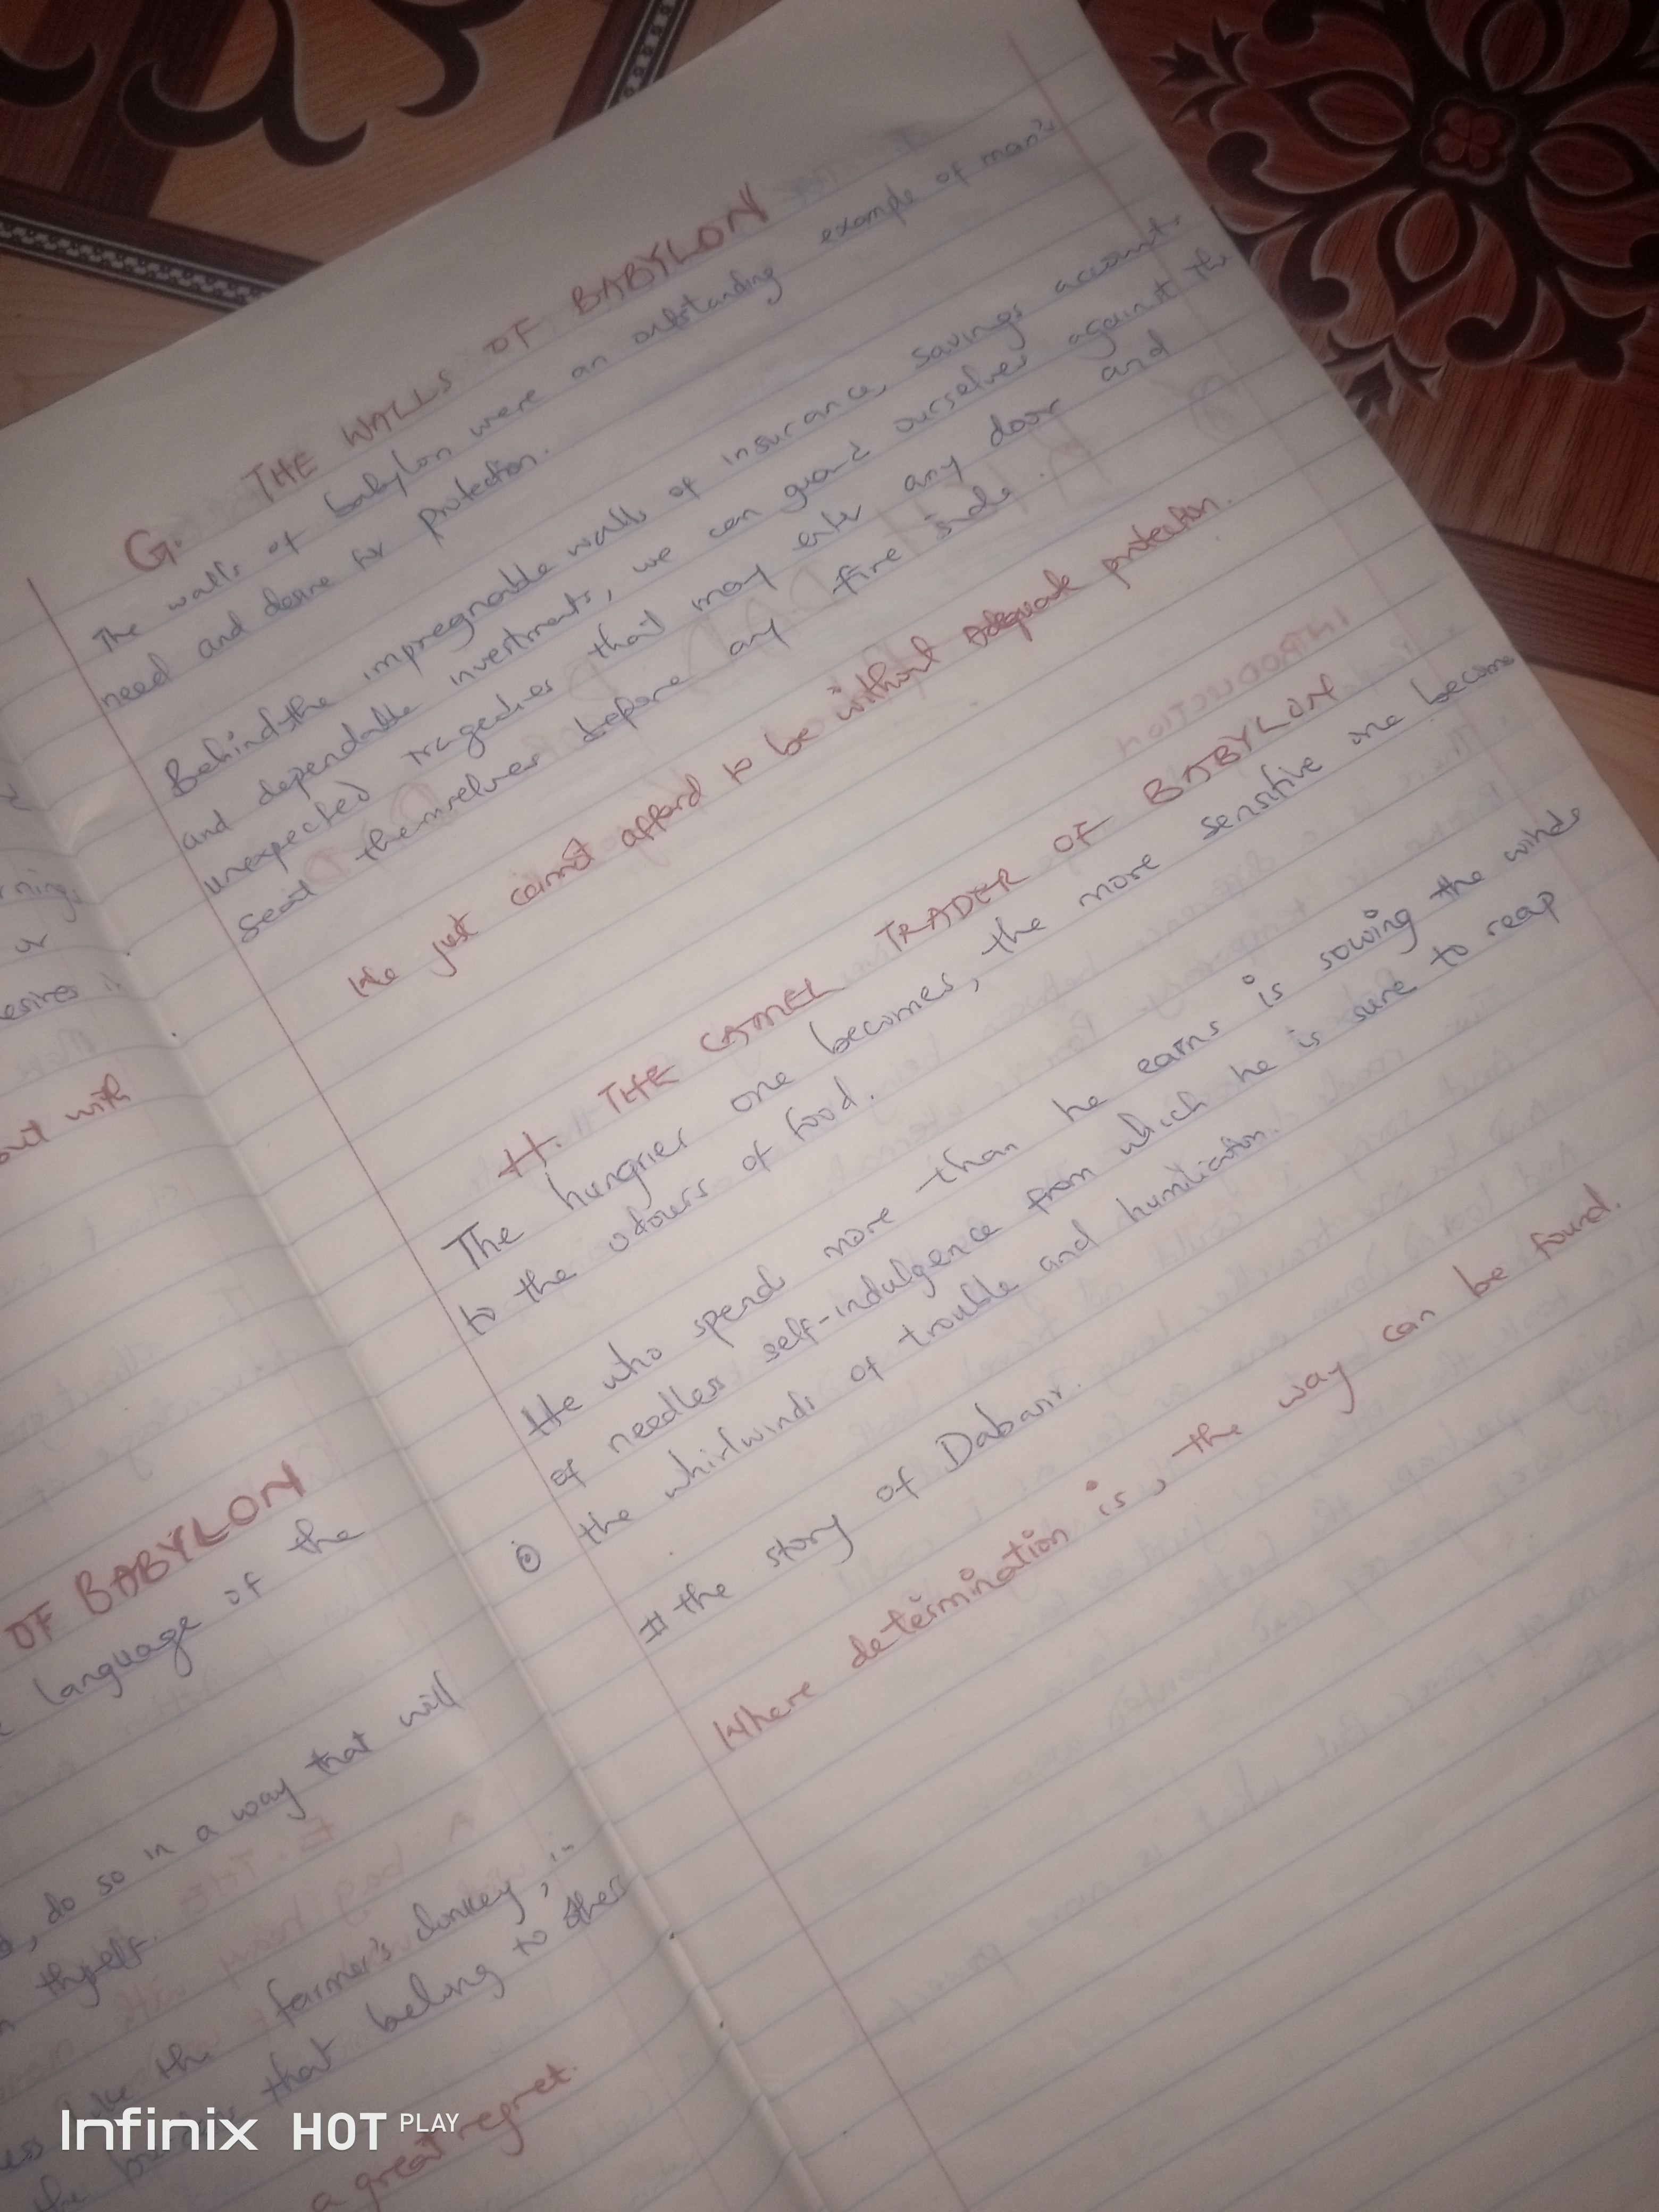 ning
or
esires
out with
OF BABYLON
language of the
do so in a way that will
thyself.
like the farmer's donkey, in
the burden that belong to others
a great regret.
G. THE WALLS OF BABYLON
The walls of babylon were an outstanding example of man's
need and desire for protection.
Behind the impregnable walls of insurance, savings accounts
and dependable investments, we can guard ourselves against the
unexpected tragedies that may enter any door and
seat themselves before any fire side.
We just cannot afford to be without adequate protection.
H. THE CAMEL TRADER OF BABYLON
The hungrier one becomes, the more sensitive one become
to the odours of food.
He who spends more than he earns is sowing the winds
of needless self-indulgence from which he is sure to reap
the whirlwinds of trouble and humiliation.
# the story of Dabasir.
Where determination is, the way can be found.
Infinix HOT PLAY